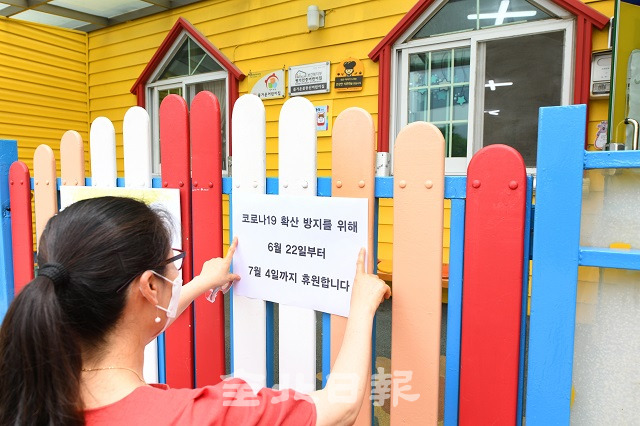 코로나19 확산 방지를 위해
6월 22일부터
7월 4일까지 휴원합니다
全北日報